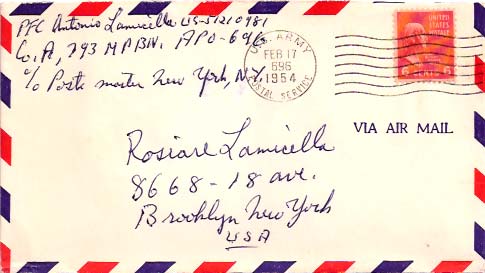 PFC Antonio Lamicella US-51210981
Co. A, 793 M P B N. APO-696
c/o Post master New York, N.Y.
U.S. ARMY
FEB 17
696
1954
POSTAL SERVICE
UNITED
STATES
POSTAGE
6 CENTS 6
VIA AIR MAIL
Lamicella
8668-18 ave.
Brooklyn New York
USA